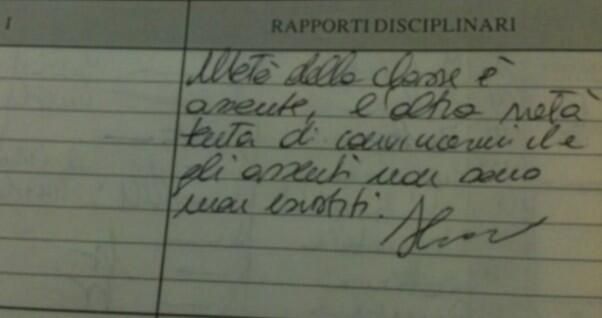 I
RAPPORTI DISCIPLINARI
Metà della classe è
assente, l'altra metà
tenta di convincermi che
gli assenti non sono
mai esistiti.